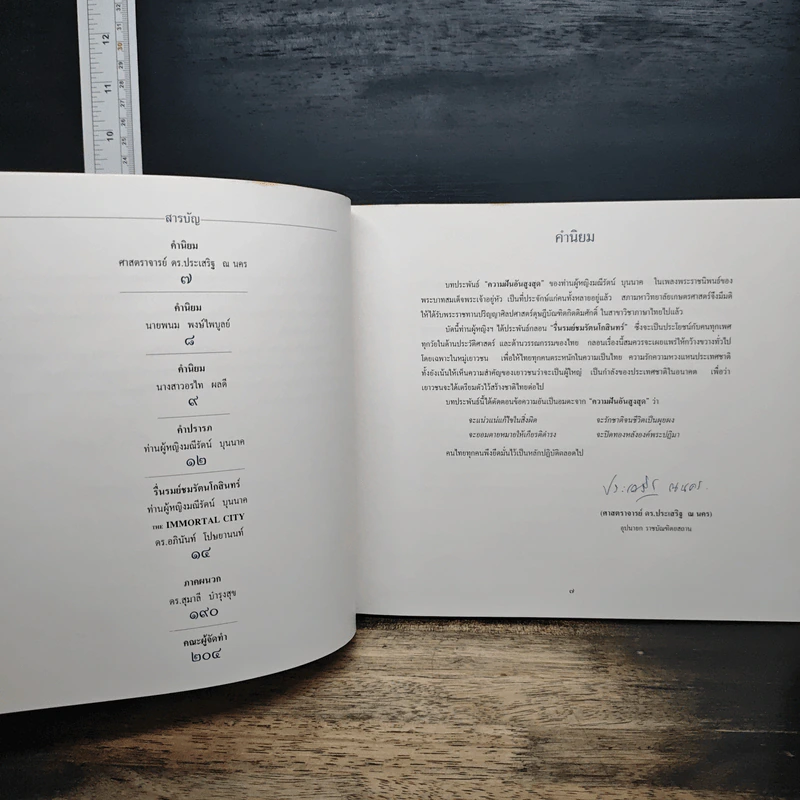 12
11
10
31
30
29
28
27
26
25
24
สารบัญ
คำนิยม
ศาสตราจารย์ ดร.ประเสริฐ ณ นคร
๗
คำนิยม
นายพนม พงษ์ไพบูลย์
๘
คำนิยม
นางสาวอรไท ผลดี
๙
คำปรารภ
ท่านผู้หญิงมณีรัตน์ บุนนาค
๑๒
รื่นรมย์ชมรัตนโกสินทร์
ท่านผู้หญิงมณีรัตน์ บุนนาค
THE IMMORTAL CITY
ดร.อภินันท์ โปษยานนท์
๑๔
ภาคผนวก
ดร.สุมาลี บำรุงสุข
๑๙๐
คณะผู้จัดทำ
๒๐๔
คำนิยม
บทประพันธ์ "ความฝันอันสูงสุด" ของท่านผู้หญิงมณีรัตน์ บุนนาค ในเพลงพระราชนิพนธ์ของ
พระบาทสมเด็จพระเจ้าอยู่หัว เป็นที่ประจักษ์แก่คนทั้งหลายอยู่แล้ว สภามหาวิทยาลัยเกษตรศาสตร์จึงมีมติ
ให้ได้รับพระราชทานปริญญาศิลปศาสตร์ดุษฎีบัณฑิตกิตติมศักดิ์ ในสาขาวิชาภาษาไทยไปแล้ว
บัดนี้ท่านผู้หญิงฯ ได้ประพันธ์กลอน "รื่นรมย์ชมรัตนโกสินทร์" ซึ่งจะเป็นประโยชน์กับคนทุกเพศ
ทุกวัยในด้านประวัติศาสตร์ และด้านวรรณกรรมของไทย กลอนเรื่องนี้สมควรจะเผยแพร่ให้กว้างขวางทั่วไป
โดยเฉพาะในหมู่เยาวชน เพื่อให้ไทยทุกคนตระหนักในความเป็นไทย ความรักความหวงแหนประเทศชาติ
ทั้งยังเน้นให้เห็นความสำคัญของเยาวชนว่าจะเป็นผู้ใหญ่ เป็นกำลังของประเทศชาติในอนาคต เพื่อว่า
เยาวชนจะได้เตรียมตัวไว้สร้างชาติไทยต่อไป
บทประพันธ์นี้ได้คัดตอนข้อความอันเป็นอมตะจาก "ความฝันอันสูงสุด" ว่า
จะแน่วแน่แก้ไขในสิ่งผิด จะรักชาติจนชีวิตเป็นผุยผง
จะยอมตายหมายให้เกียรติดำรง จะปิดทองหลังองค์พระปฏิมา
คนไทยทุกคนพึงยึดมั่นไว้เป็นหลักปฏิบัติตลอดไป
ประเสริฐ ณ นคร
(ศาสตราจารย์ ดร.ประเสริฐ ณ นคร)
อุปนายก ราชบัณฑิตยสถาน
๗